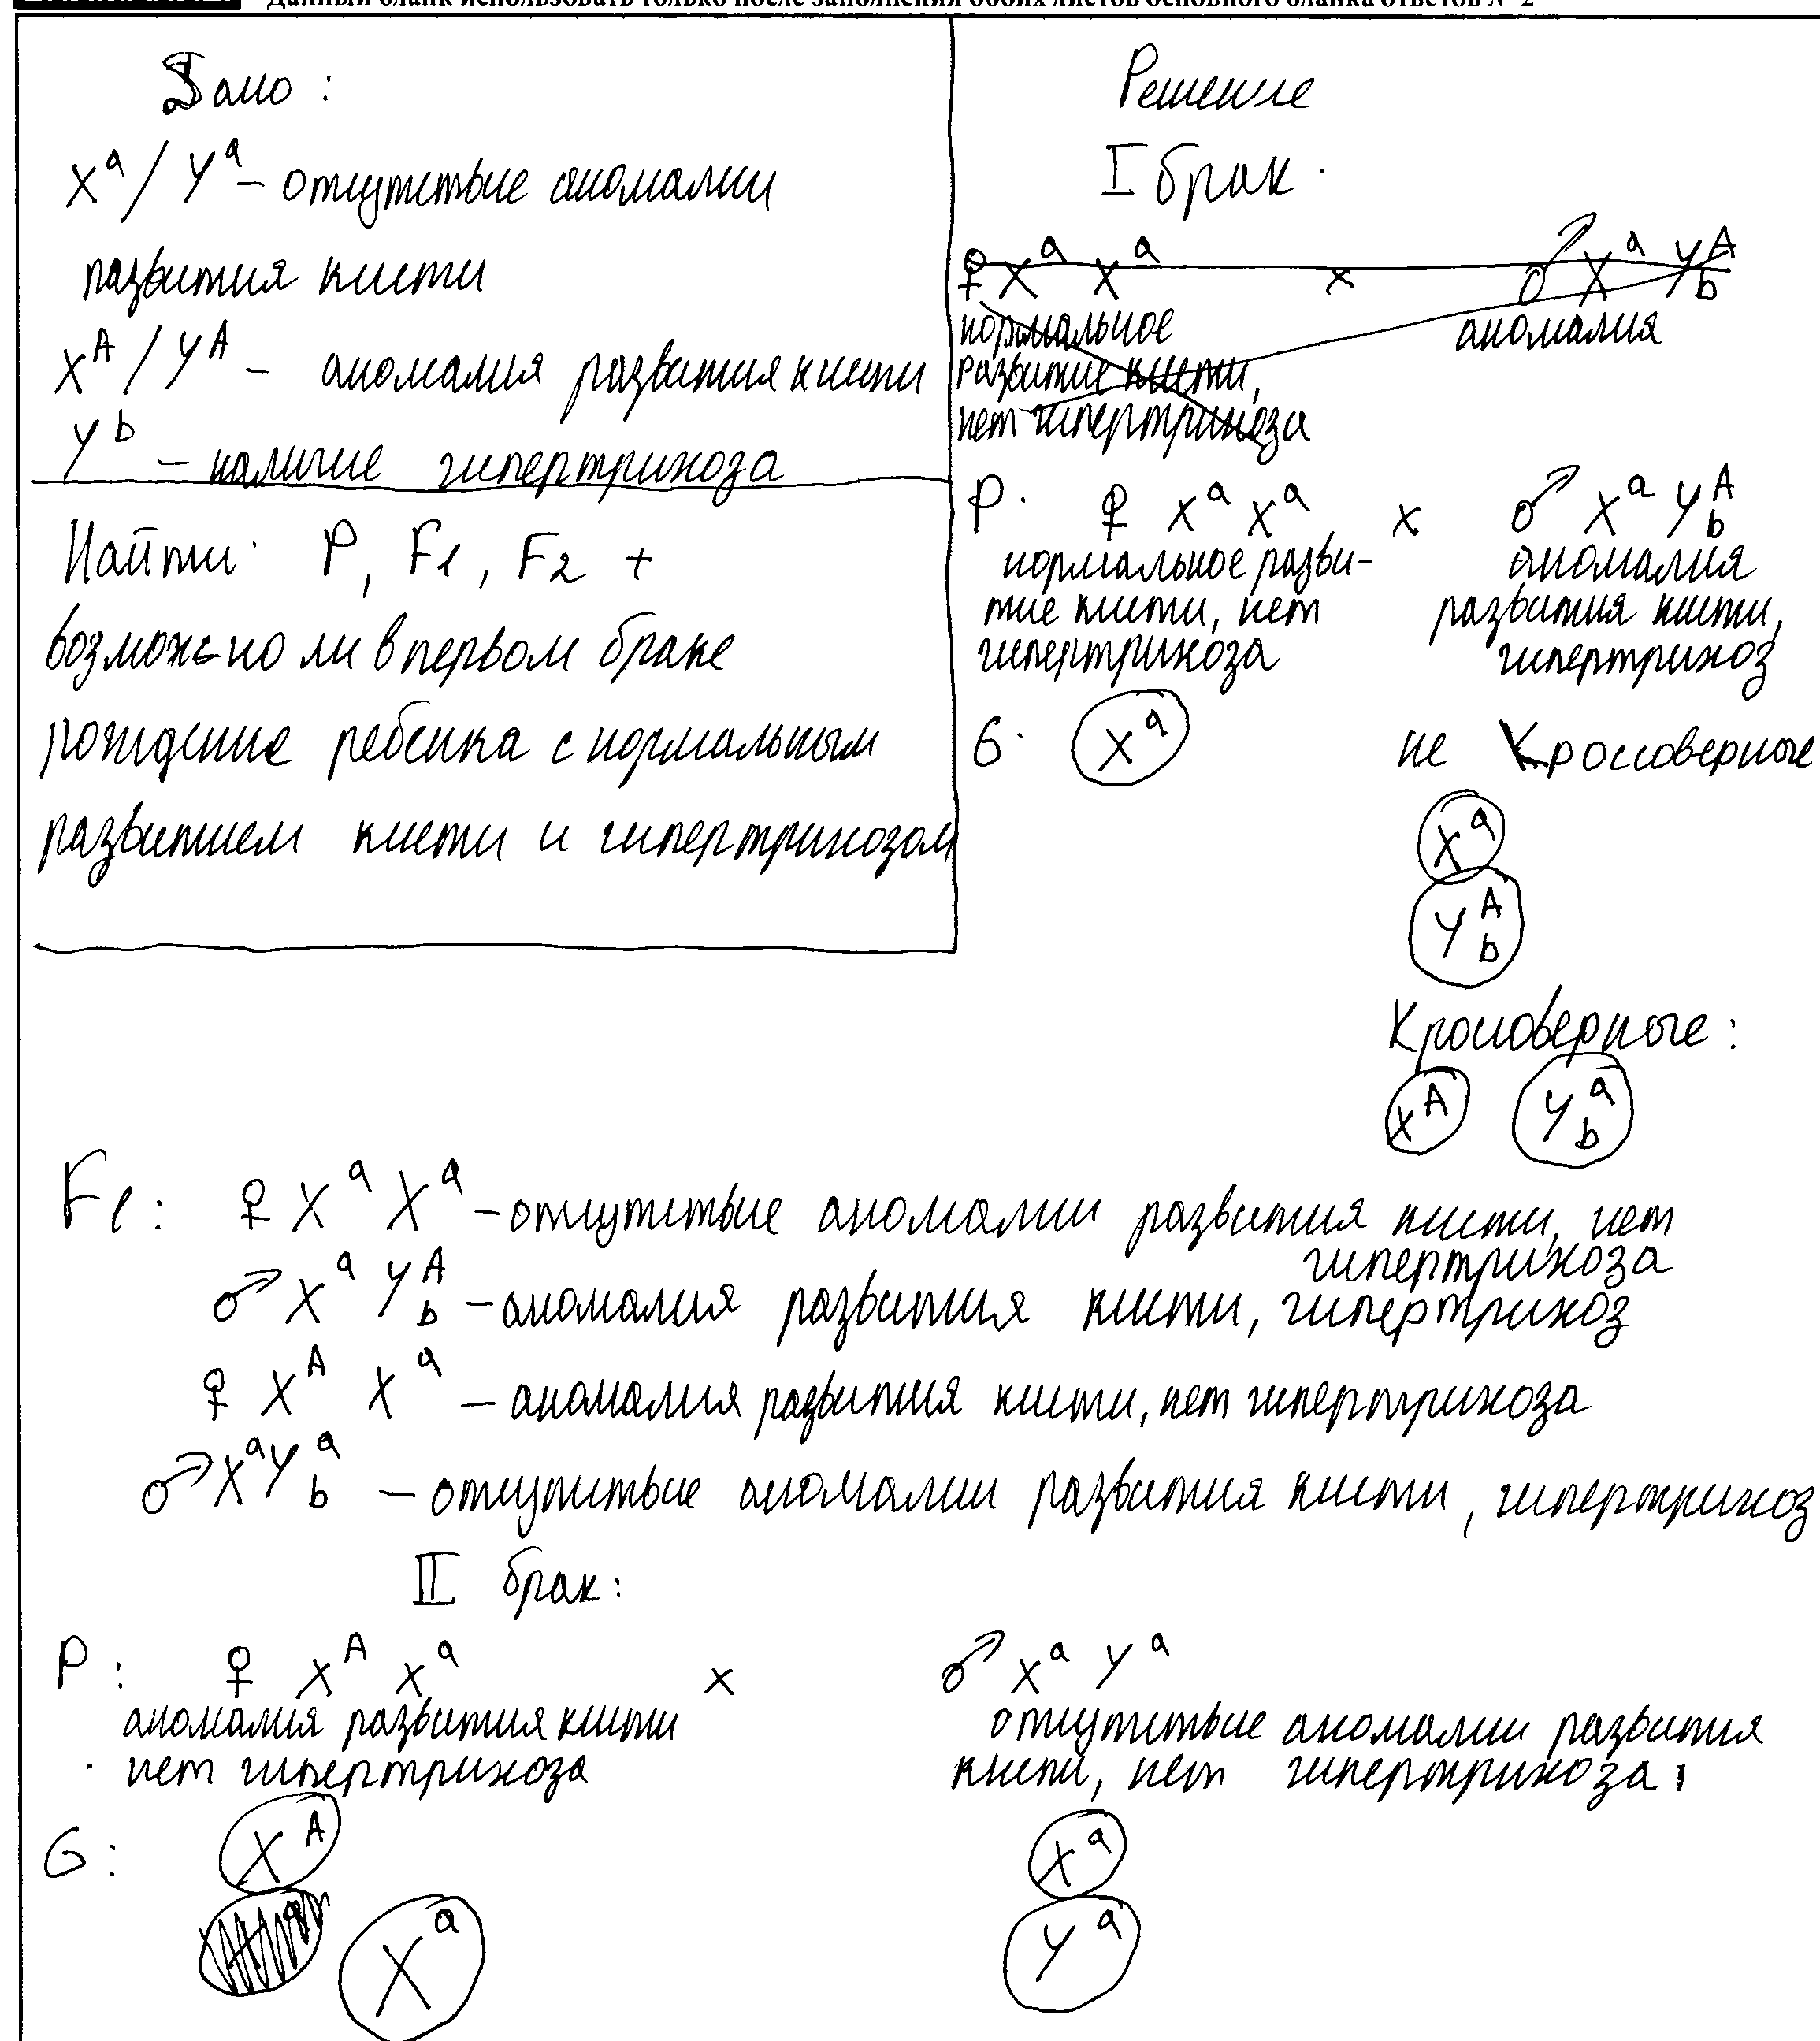 Данный бланк использовать только после заполнения обоих листов основного бланка ответов № 2
Дано:
Xᵃ / Yᵃ – отсутствие аномалии
развития кисти
Xᴬ / Yᴬ – аномалия развития кисти
Yᵇ – наличие гипертрихоза
Найти: P, F1, F2 +
возможно ли в первом браке
рождение ребенка с нормальным
развитием кисти и гипертрихозом
Решение
I брак.
♀ Xᵃ Xᵃ x ♂ Xᵃ Yᴬb
нормальное аномалия
развитие кисти,
нет гипертрихоза
P. ♀ Xᵃ Xᵃ x ♂ Xᵃ Yᴬb
нормальное разви- аномалия
тие кисти, нет развития кисти,
гипертрихоза гипертрихоз
G. Xᵃ не кроссоверные
Xᵃ
Yᴬb
Кроссоверные:
Xᴬ Yᵃb
F1: ♀ Xᵃ Xᵃ – отсутствие аномалии развития кисти, нет
гипертрихоза
♂ Xᵃ Yᴬb – аномалия развития кисти, гипертрихоз
♀ Xᴬ Xᵃ – аномалия развития кисти, нет гипертрихоза
♂ Xᵃ Yᵃb – отсутствие аномалии развития кисти, гипертрихоз
II брак:
P: ♀ Xᴬ Xᵃ x ♂ Xᵃ Yᵃ
аномалия развития кисти отсутствие аномалии развития
нет гипертрихоза кисти, нет гипертрихоза
G: Xᴬ Xᵃ
Xᵃ Yᵃ